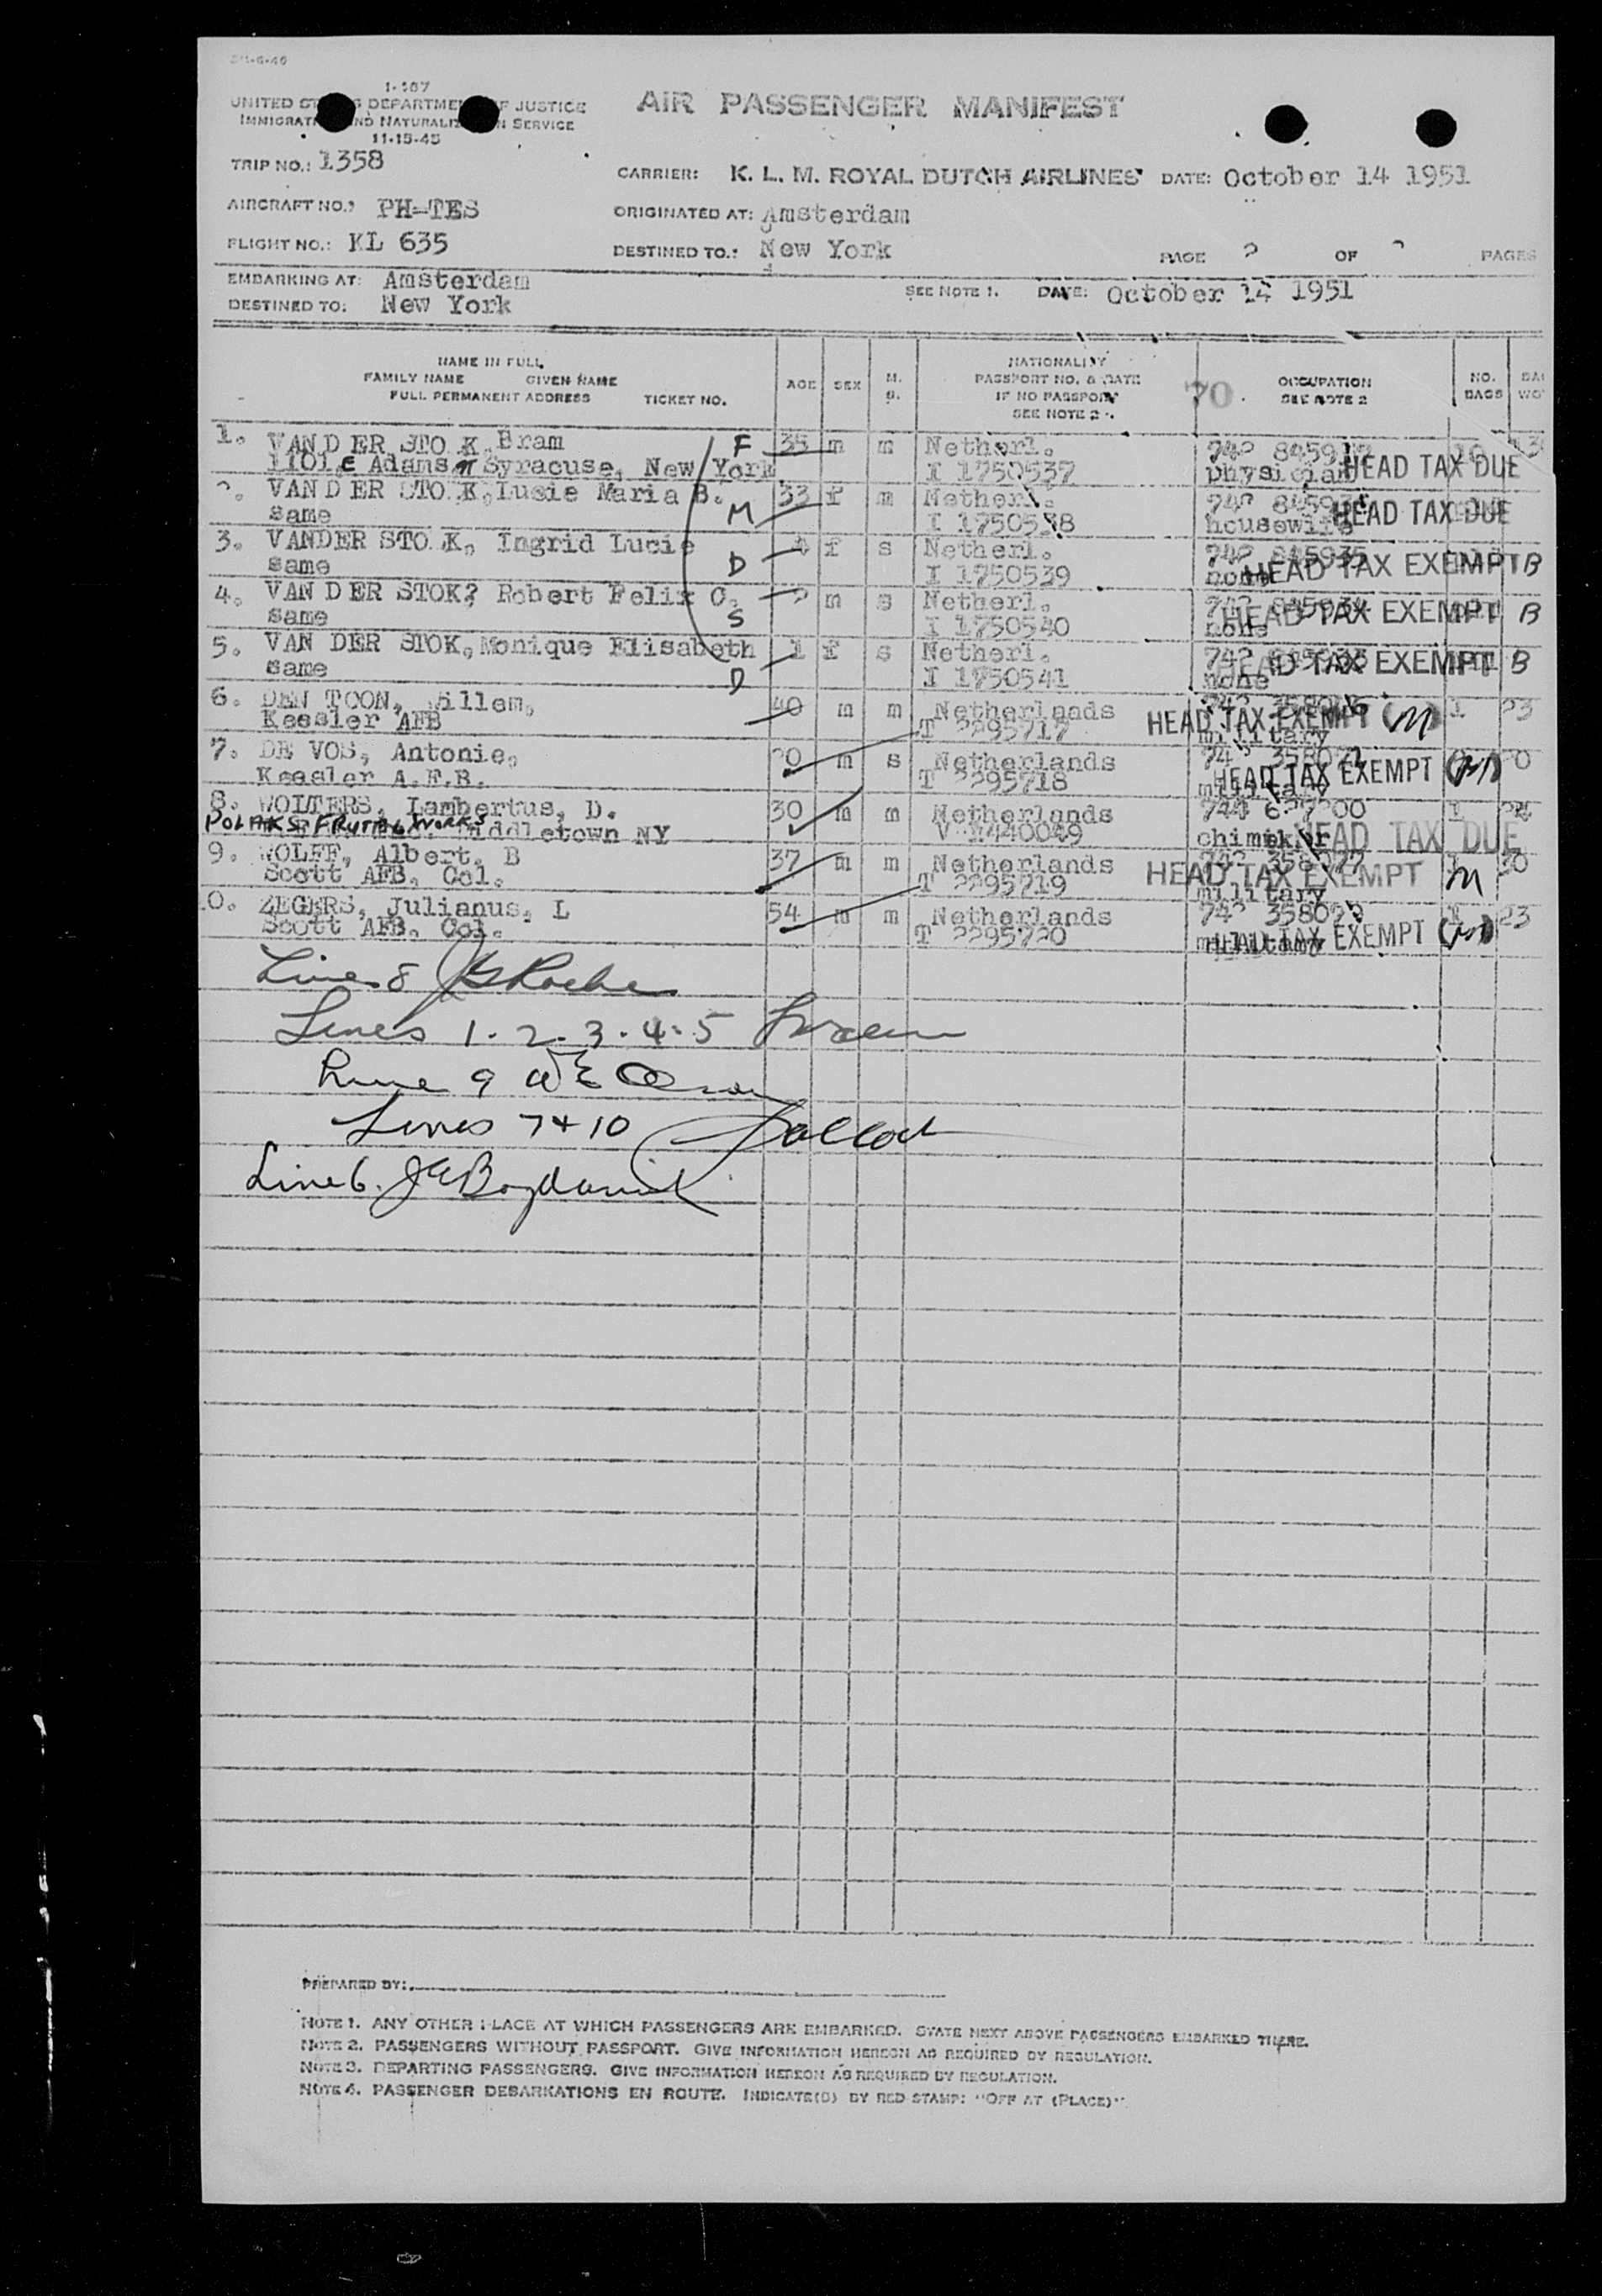 I-107
UNITED STATES DEPARTMENT OF JUSTICE
IMMIGRATION AND NATURALIZATION SERVICE
11-15-45
AIR PASSENGER MANIFEST
TRIP NO.: 1358
CARRIER: K. L. M. ROYAL DUTCH AIRLINES DATE: October 14 1951
AIRCRAFT NO.: PH-TES
ORIGINATED AT: Amsterdam
FLIGHT NO.: KL 635
DESTINED TO.: New York
PAGE 2 OF 2 PAGES
EMBARKING AT: Amsterdam
SEE NOTE 1. DATE: October 14 1951
DESTINED TO: New York
NAME IN FULL
FAMILY NAME GIVEN NAME
FULL PERMANENT ADDRESS TICKET NO.
AGE SEX M. S.
NATIONALITY
PASSPORT NO. & DATE
IF NO PASSPORT
SEE NOTE 2
70.
OCCUPATION
SEE NOTE 2
NO. BAGS
1. VAN D ER STO K, Bram F 35 m m Netherl.
1101 E Adams Syracuse, New York I 1750537 physician HEAD TAX DUE
2. VAN D ER STO K, Lucie Maria B. 33 f m Netherl.
same M I 1750538 housewife HEAD TAX DUE
3. VANDER STO K, Ingrid Lucie 4 f s Netherl. 742 845935
same D I 1750539 none HEAD TAX EXEMPT B
4. VAN D ER STOK? Robert Felix C. 2 m s Netherl.
same S I 1750540 none HEAD TAX EXEMPT B
5. VAN DER STOK, Monique Elisabeth 1 f s Netherl.
same D I 1750541 none HEAD TAX EXEMPT B
6. DEN TOON, Willem, 40 m m Netherlands 1 23
Keesler AFB T 2295717 military HEAD TAX EXEMPT (m)
7. DE VOS, Antonie, 20 m s Netherlands
Keesler A.F.B. T 2295718 military HEAD TAX EXEMPT (m)
8. WOLTERS, Lambertus, D. 30 m m Netherlands 1
POLAKS FRUTAL WORKS Middletown NY V 440049 HEAD TAX DUE
9. WOLFF, Albert, B 37 m m Netherlands
Scott AFB, Col. T 2295719 military HEAD TAX EXEMPT m
10. ZEGERS, Julianus, L 54 m m Netherlands 1 23
Scott AFB, Col. T 2295720 military HEAD TAX EXEMPT (m)
Line 8
Lines 1. 2. 3. 4. 5
Line 9
Lines 7 + 10
Line 6.
PREPARED BY:
NOTE 1. ANY OTHER PLACE AT WHICH PASSENGERS ARE EMBARKED. STATE NEXT ABOVE PASSENGERS EMBARKED THERE.
NOTE 2. PASSENGERS WITHOUT PASSPORT. GIVE INFORMATION HEREON AS REQUIRED BY REGULATION.
NOTE 3. DEPARTING PASSENGERS. GIVE INFORMATION HEREON AS REQUIRED BY REGULATION.
NOTE 4. PASSENGER DEBARKATIONS EN ROUTE. INDICATE(D) BY RED STAMP: "OFF AT (PLACE)".